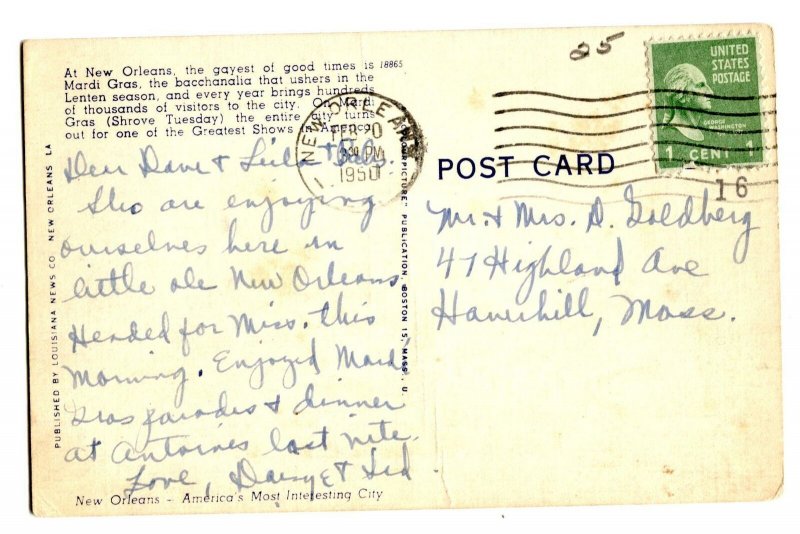 At New Orleans, the gayest of good times is 18865
Mardi Gras, the bacchanalia that ushers in the
Lenten season, and every year brings hundreds
of thousands of visitors to the city. On Mardi
Gras (Shrove Tuesday) the entire city turns
out for one of the Greatest Shows in America.
Dear Dave & Leila &
are enjoying
ourselves here in
little ole New Orleans
Headed for Miss. this
Morning. Enjoyed Mardi
Gras parades & dinner
at Antoines last nite.
Love, Daisy & Sid
New Orleans - America's Most Interesting City
PUBLISHED BY LOUISIANA NEWS CO. NEW ORLEANS, LA
"COLOURPICTURE" PUBLICATION, BOSTON 15, MASS., U.
NEW ORLEANS
FEB 20
PM
1950
POST CARD
UNITED
STATES
POSTAGE
GEORGE
WASHINGTON
1 CENT 1
16
Mr. & Mrs. D. Goldberg
47 Highland Ave
Haverhill, Mass.